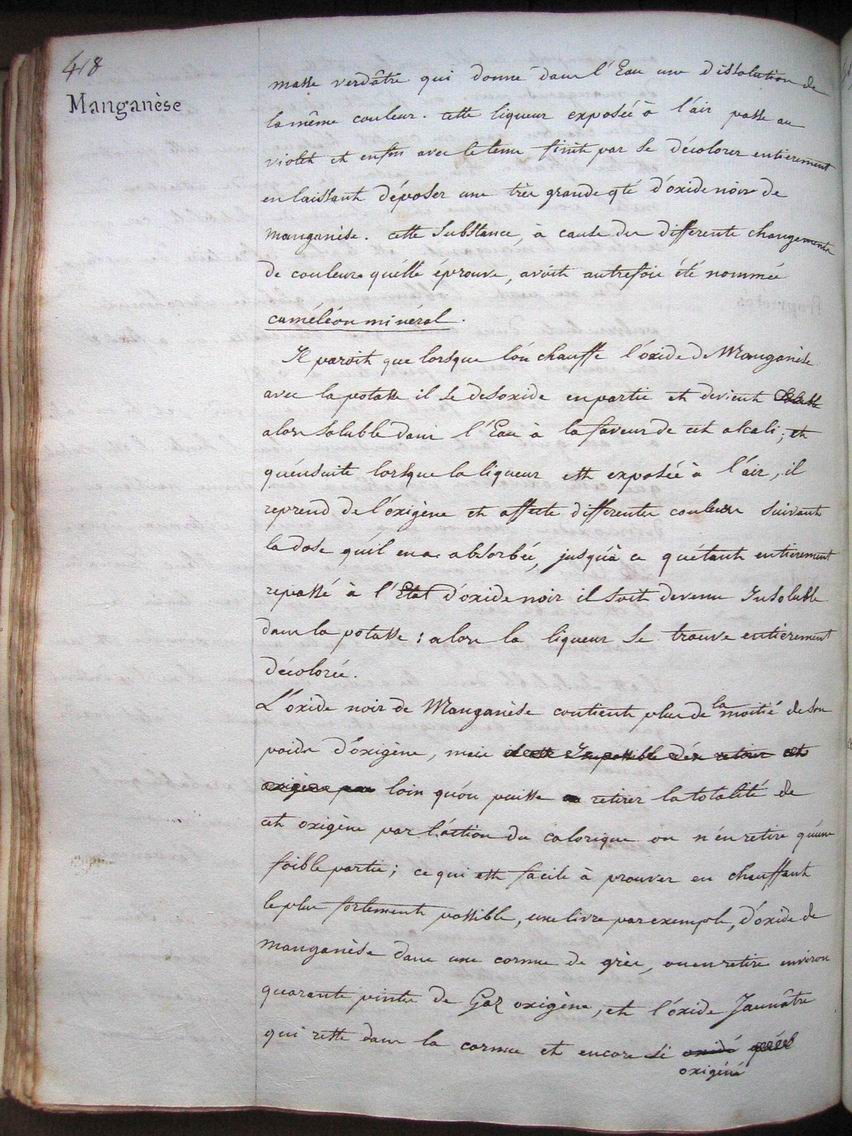 418
Manganèse
masse verdâtre qui donne dans l'Eau une dissolution de
la même couleur. cette liqueur exposée à l'air passe au
violet et enfin avec le tems finit par se décolorer entierement
en laissant déposer une très grande qté d'oxide noir de
manganèse. cette substance, à cause des differents changements
de couleurs quélle éprouve, avoit autrefois été nommée
caméléon mineral.
Il paroit que lorsque l'on chauffe l'oxide de Manganèse
avec la potasse il se desoxide en partie et devient
alors soluble dans l'Eau à la faveur de cet alcali; et
qu'ensuite lorsque la liqueur est exposée à l'air, il
reprend de l'oxigène et affecte differentes couleurs suivant
la dose qu'il en a absorbée, jusqu'à ce qu'étant entierement
repassé à l'Etat d'oxide noir il soit devenu Insoluble
dans la potasse : alors la liqueur se trouve entièrement
décolorée.
L'oxide noir de Manganèse contient plus de la moitié de son
poids d'oxigène, mais il est Impossible d'en retirer cet
oxigène par loin qu'on puisse retirer la totalité de
cet oxigène par l'action du calorique on n'en retire qu'une
foible partie; ce qui est facile à prouver en chauffant
le plus fortement possible, une livre par exemple, d'oxide de
manganèse dans une cornue de grès, on en retire environ
quarante pintes de Gaz oxigène, et l'oxide Jaunâtre
qui reste dans la cornue est encore si oxidé
oxigéné